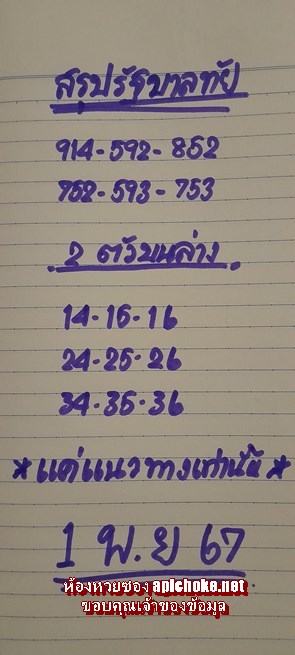 สรุปรัฐบาลไทย
914-592-852
752-593-753
2 ตัวบนล่าง
14-15-16
24-25-26
34-35-36
*แค่แนวทางเท่านั้น*
1 พ.ย 67
ห้องหวยซอง apichoke.net
ขอบคุณเจ้าของข้อมูล